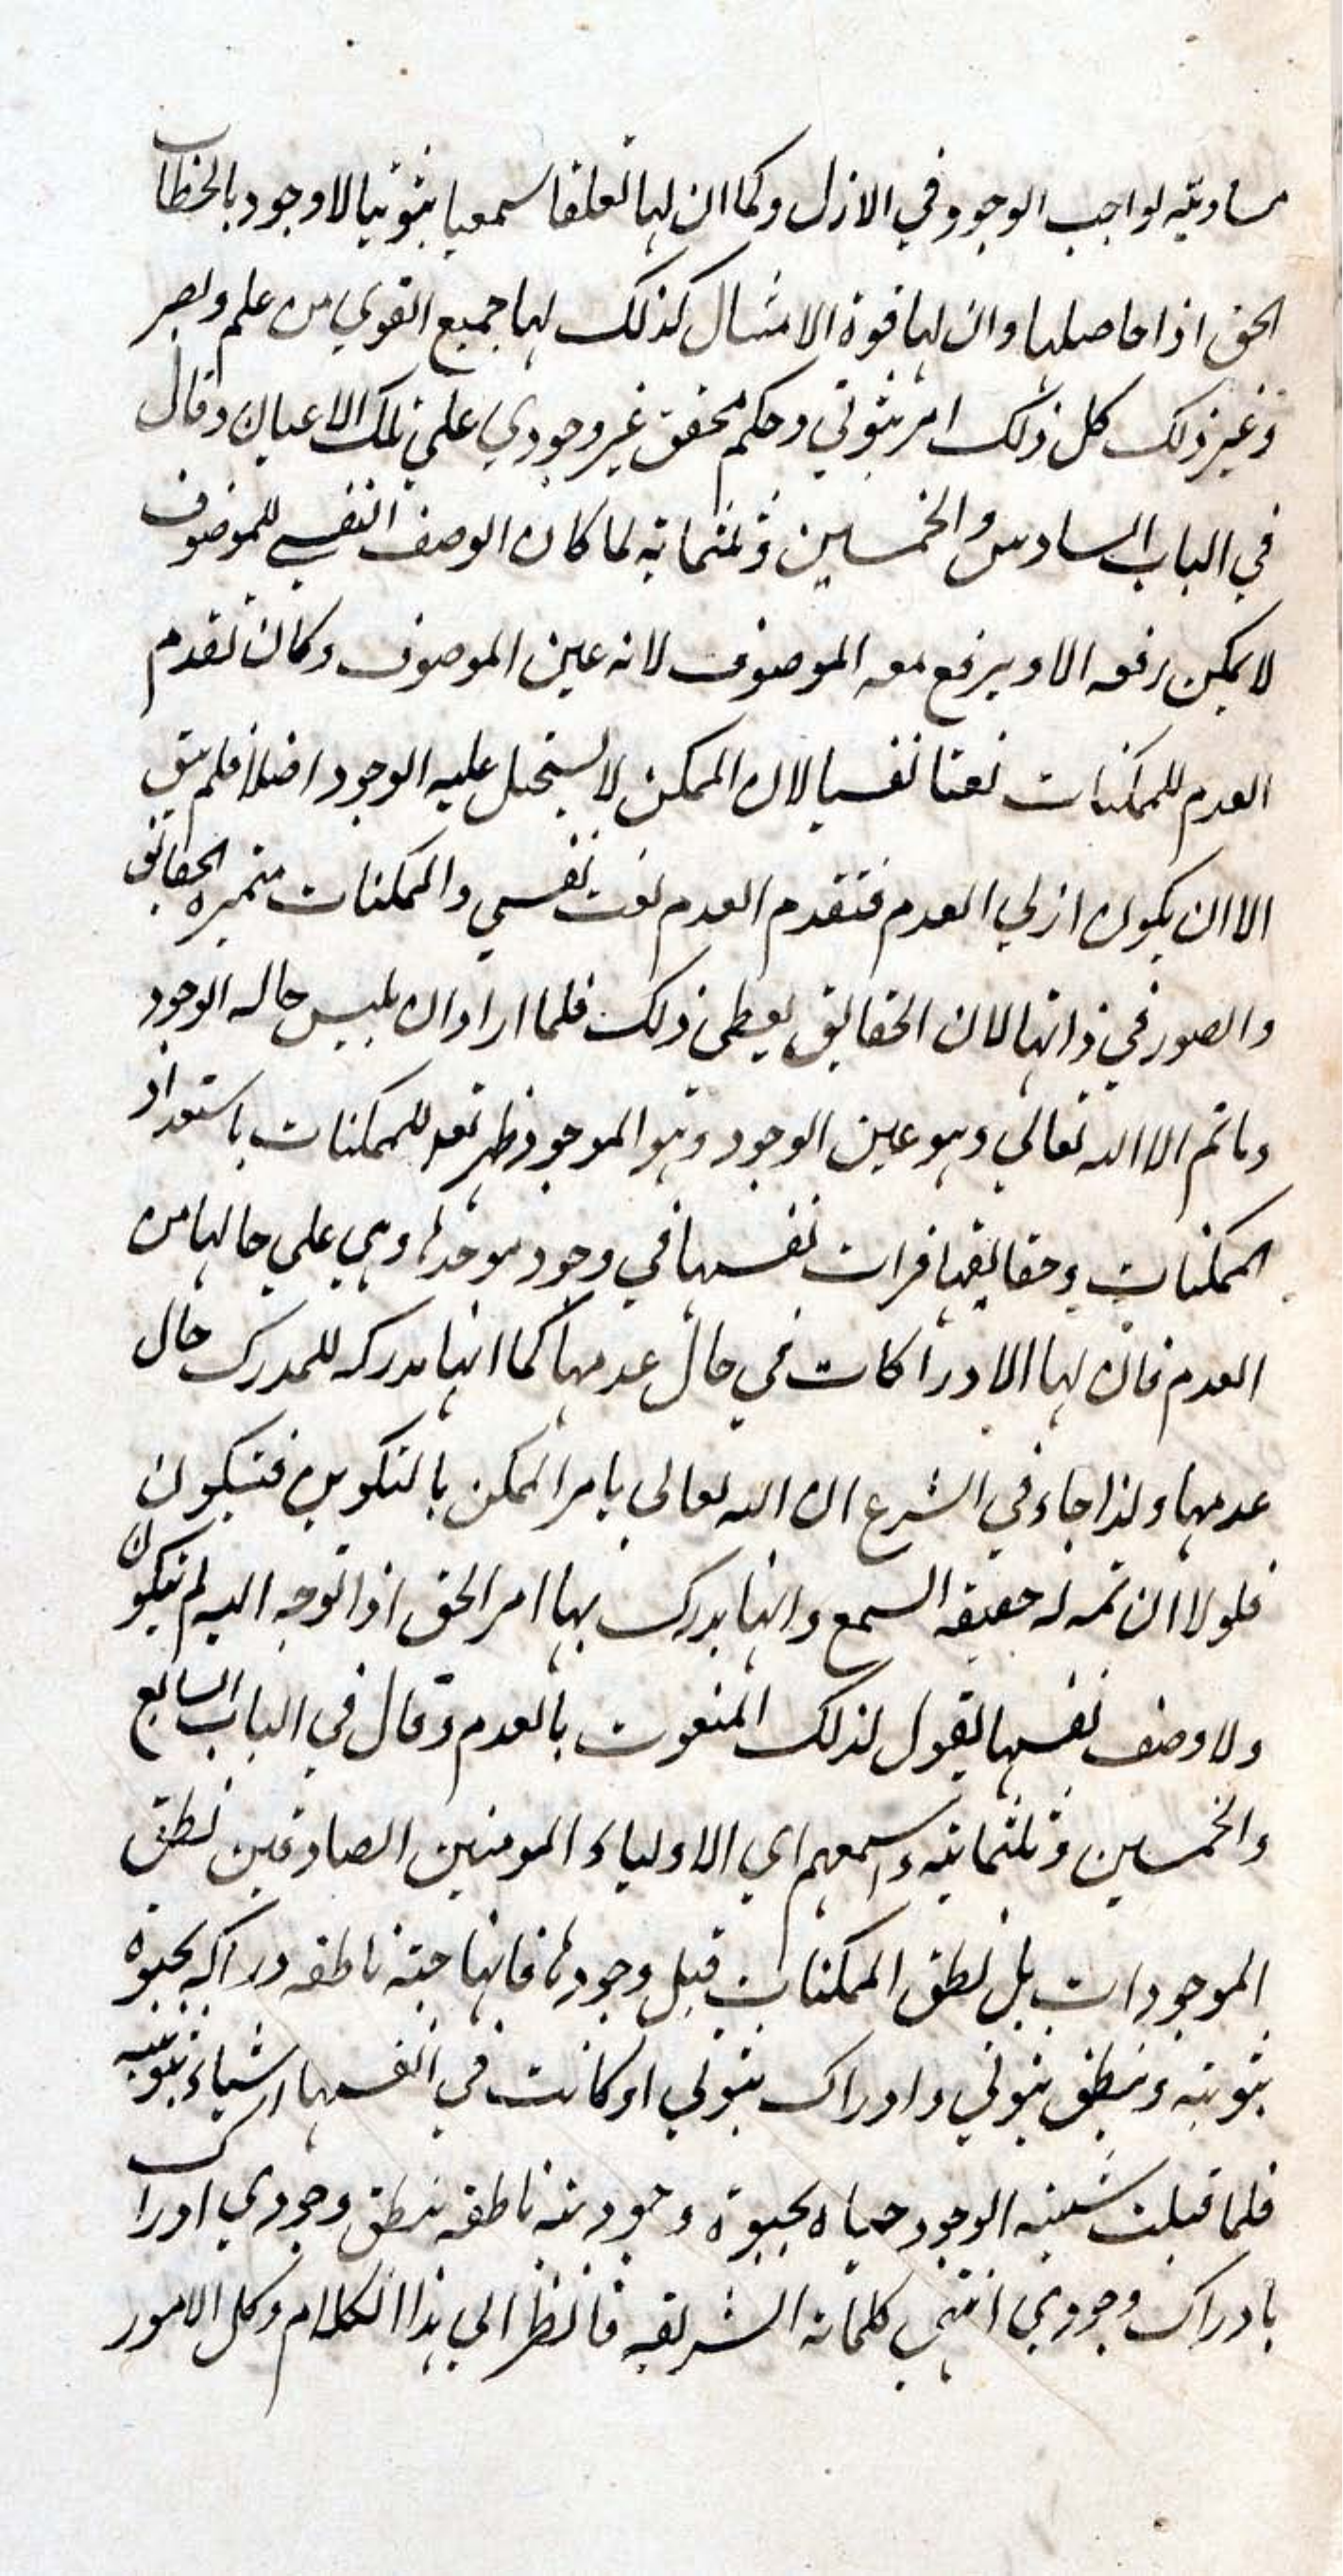 مساويته لواجب الوجود في الازل وكما ان لها تعلقا سمعيا ثبوتيا لا وجود بالخطاب
الحق اذا خاصلها وان لها قوة الامتثال كذلك لها جميع القوي من علم وبصر
وغير ذلك كل ذلك امر ثبوتي وحكم محقق غير وجودي علي تلك الاعيان وقال
في الباب السادس والخمسين وثلثمايه لما كان الوصف النفسي للموصوف
لا يمكن رفعه الا ويرفع معه الموصوف لانه عين الموصوف وكان تقدم
العدم للممكنات نعتا نفسيا لان الممكن لا يستحيل عليه الوجود اصلا فلم يبق
الا ان يكون ازلي العدم فتقدم العدم نعت نفسي والممكنات متميزه الحقائق
والصور في ذاتها لان الحقايق يعطي ذلك فلما اراد ان يلبس حاله الوجود
وما ثم الا الله تعالي وهو عين الوجود وهو الموجود ظهر تعه للممكنات باستعداد
الممكنات وحقايقها فرات نفسها في وجود موجدها وهي علي حالها من
العدم فان لها الادراكات في حال عدمها كما انها مدركه للمدرك حال
عدمها ولذا جاء في الشرع ان الله تعالي يامر الممكن بالتكوين فتيكون
فلولا ان ثمه له حقيقه السمع وانها يدرك بها امر الحق اذا توجه اليه لم يتكون
ولا وصف نفسها بقول لذلك المنعوت بالعدم وقال في الباب السابع
والخمسين وثلثمايه واسمعهم اي الاولياء المومنين الصادقين نطق
الموجودات بل نطق الممكنات قبل وجودها فانها حيّة ناطقه دراكه بحيوة
ثبوتيه ونطق ثبوتي وادراك ثبوتي او كانت في انفسها اشياء ثبوتيه
فلما قبلت شيئيه الوجود حياه بحيوة وجوديه ناطقه بنطق وجودي ادراك
بادراك وجودي انتهي كلماته الشريفه فانظر الي هذا الكلام وكل الامور